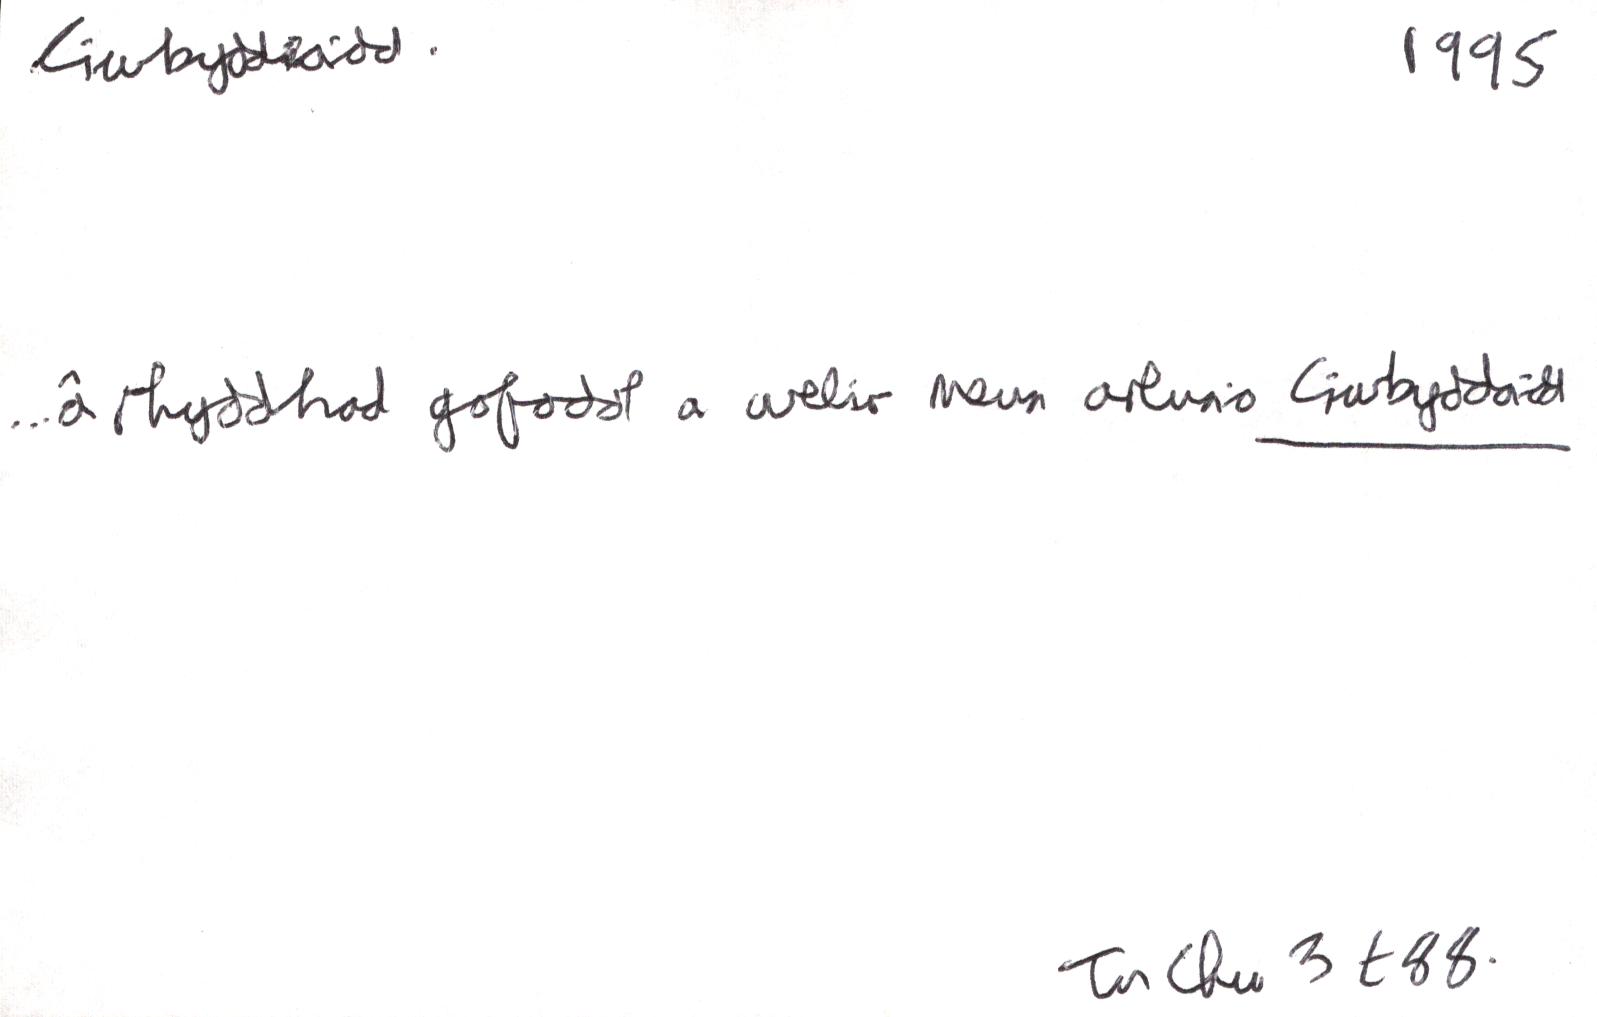 Ciwbyddaidd. 1995
...â rhyddhad gofodol a welir mewn arlunio Ciwbyddaidd
Tu Chw 3 t 88.